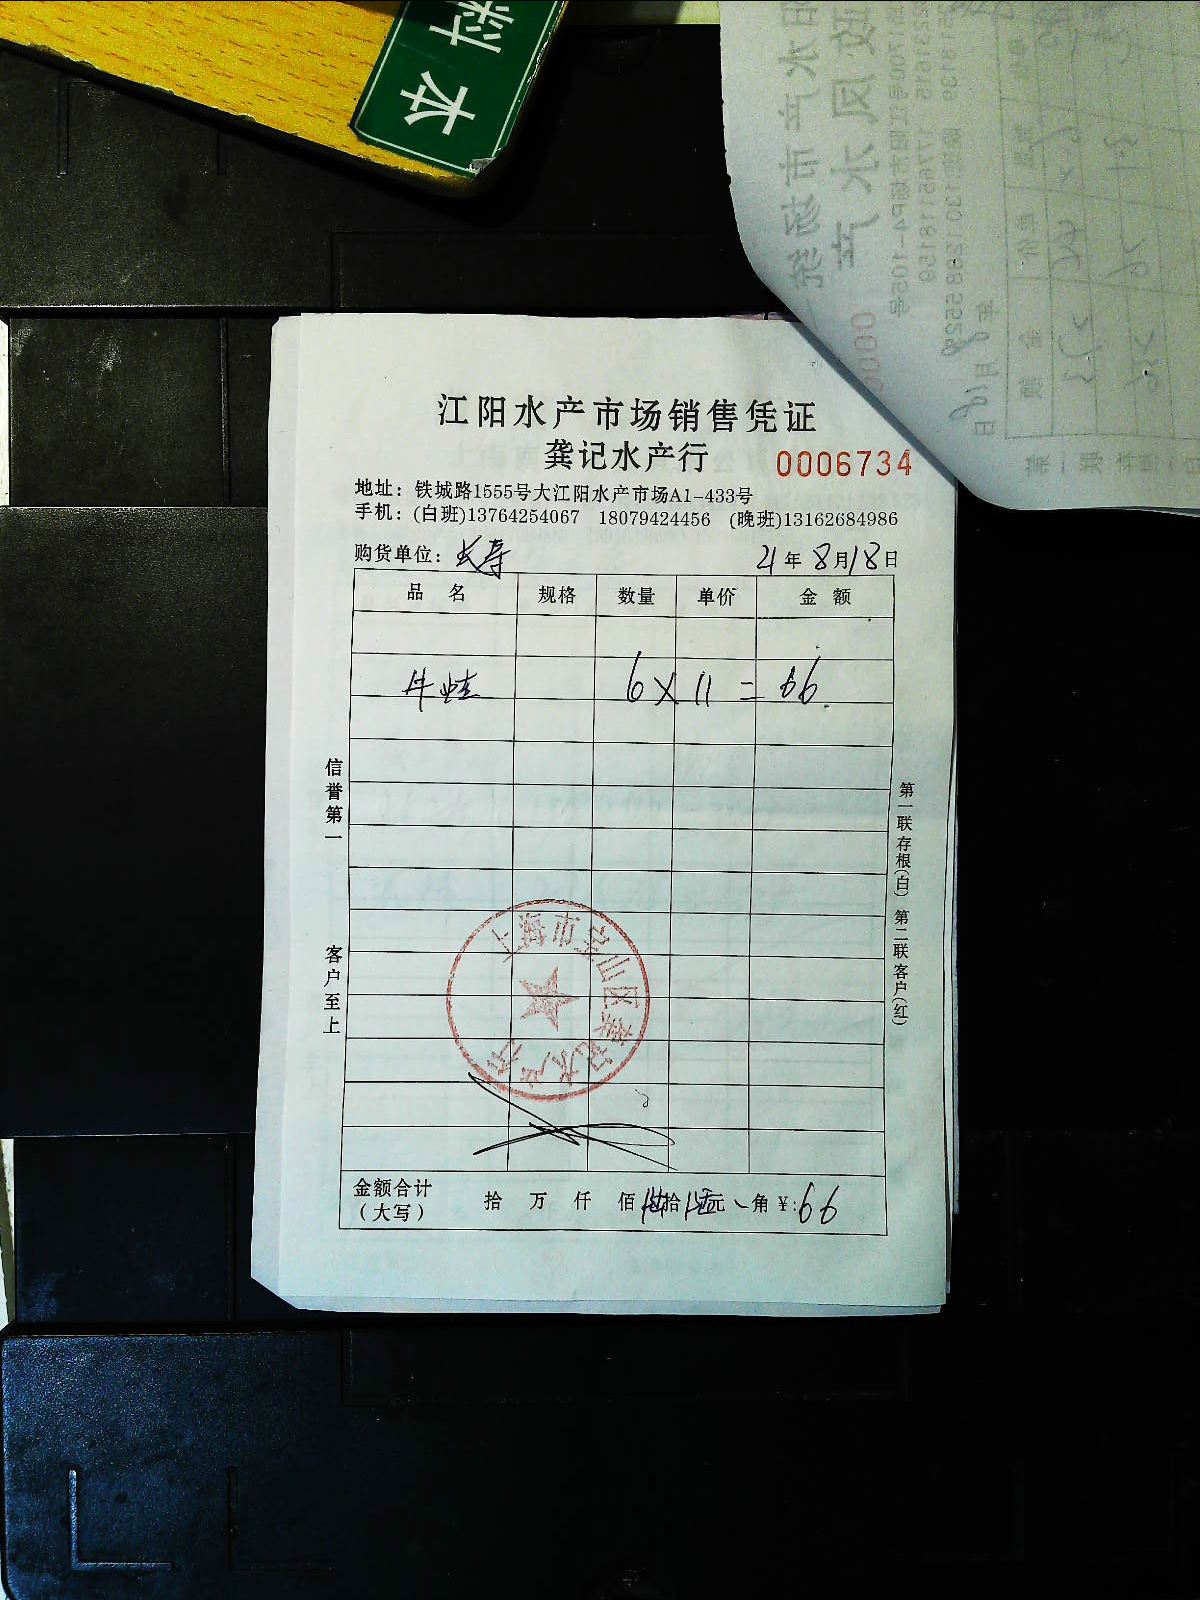 料本
江阳水产市场销售凭证
龚记水产行 0006734
地址：铁城路1555号大江阳水产市场A1-433号
手机：(白班)13764254067 18079424456 (晚班)13162684986
购货单位：长寿 21年8月18日
品名 规格 数量 单价 金额
牛蛙 6×11=66
信誉第一 客户至上
第一联存根(白) 第二联客户(红)
上海市宝山区龚记水产行
金额合计（大写） 拾 万 仟 佰 陆拾 陆元 角 ￥:66